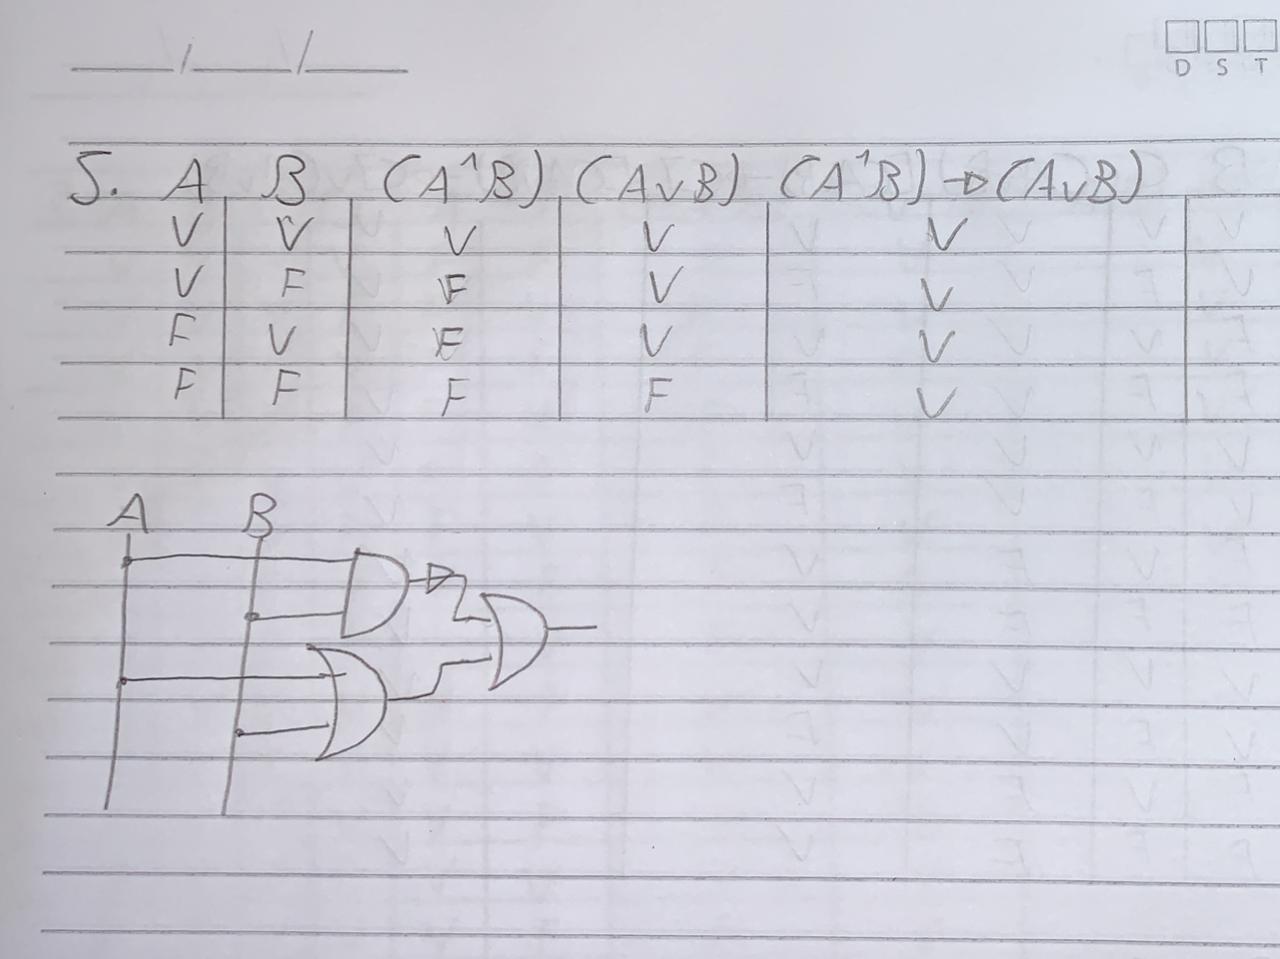 ___/___/___
D S T
5. A B (A^B) (AvB) (A^B)→(AvB)
V V V V V
V F F V V
F V F V V
F F F F V
A B